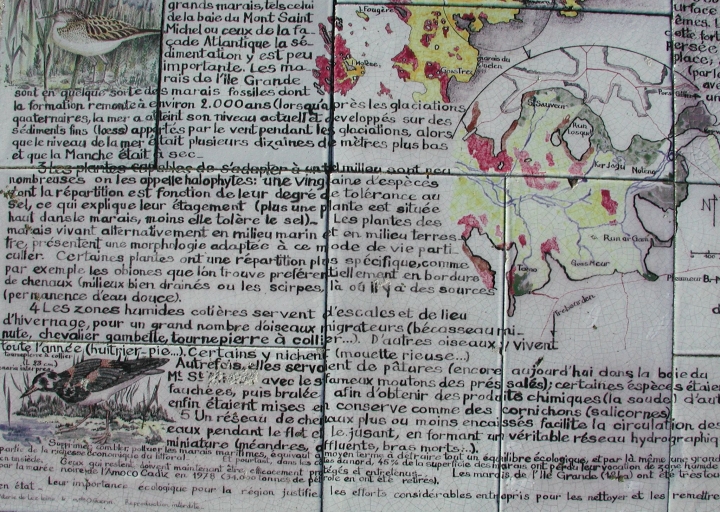 grands marais, tels celui
de la baie du Mont Saint
Michel ou ceux de la fa-
çade Atlantique la sé-
dimentation y est peu
importante. Les ma-
rais de l'Ile Grande
sont en quelque sorte des marais fossiles dont
la formation remonte à environ 2.000 ans (lorsqu'après les glaciations
quaternaires, la mer a atteint son niveau actuel) et développés sur des
sédiments fins (lœss) apportés par le vent pendant les glaciations, alors
que le niveau de la mer était plusieurs dizaines de mètres plus bas
et que la Manche était à sec
3 Les plantes capables de s'adapter à un tel milieu sont peu
nombreuses on les appelle halophytes: une vingtaine d'espèces
dont la répartition est fonction de leur degré de tolérance au
sel, ce qui explique leur étagement (plus une plante est située
haut dans le marais, moins elle tolère le sel). Les plantes des
marais vivant alternativement en milieu marin et en milieu terres-
tre, présentent une morphologie adaptée à ce mode de vie parti-
culier. Certaines plantes ont une répartition plus spécifique, comme
par exemple les obiones que l'on trouve préférentiellement en bordure
de chenaux (milieux bien drainés ou les scirpes, là où il y a des sources
(permanence d'eau douce).
4 Les zones humides cotières servent d'escales et de lieu
d'hivernage, pour un grand nombre d'oiseaux migrateurs (bécasseau mi-
nute, chevalier gambette, tournepierre à collier...). D'autres oiseaux y vivent
toute l'année (huitrier-pie...). Certains y nichent (mouette rieuse...)
Autrefois, elles servaient de pâtures (encore aujourd'hui dans la baie du
Mt St avec les fameux moutons des prés salés); certaines espèces étaient
fauchées, puis brulées afin d'obtenir des produits chimiques (la soude) d'aut
enfin étaient mises en conserve comme des cornichons (salicornes)
5 Un réseau de chenaux plus ou moins encaissés facilite la circulation des
eaux pendant le flot et le jusant, en formant un véritable réseau hydrographiq
miniature (méandres, affluents, bras morts...).
Supprimer, combler, polluer les marais maritimes, équivaut à moyen terme à détruire tout un équilibre écologique, et par là même une grand
partie de la richesse économique du littoral. Et pourtant, dans les Côtes du nord, 45 % de la superficie des marais ont perdu leur vocation de zone humide
Ceux qui restent doivent maintenant être efficacement protégés et entretenus. Les marais de l'Ile Grande ont été très touc
par la marée noire de l'Amoco Cadiz en 1978 de pétrole en ont été retirés).
en état. Leur importance écologique pour la région justifie les efforts considérables entrepris pour les nettoyer et les remettre
Reproduction interdite
tournepierre à collier
(L. 23 cm)
L. Fougère
marais du
Quellen
St Sauveur
Run
Losquet
Kerjagu
Notenou
Run ar Gam
Goas Meur
Toëno
Trebeurden
Pleumeur B
N
surface
êmes.
cette fort
persée
place;
(par
ave